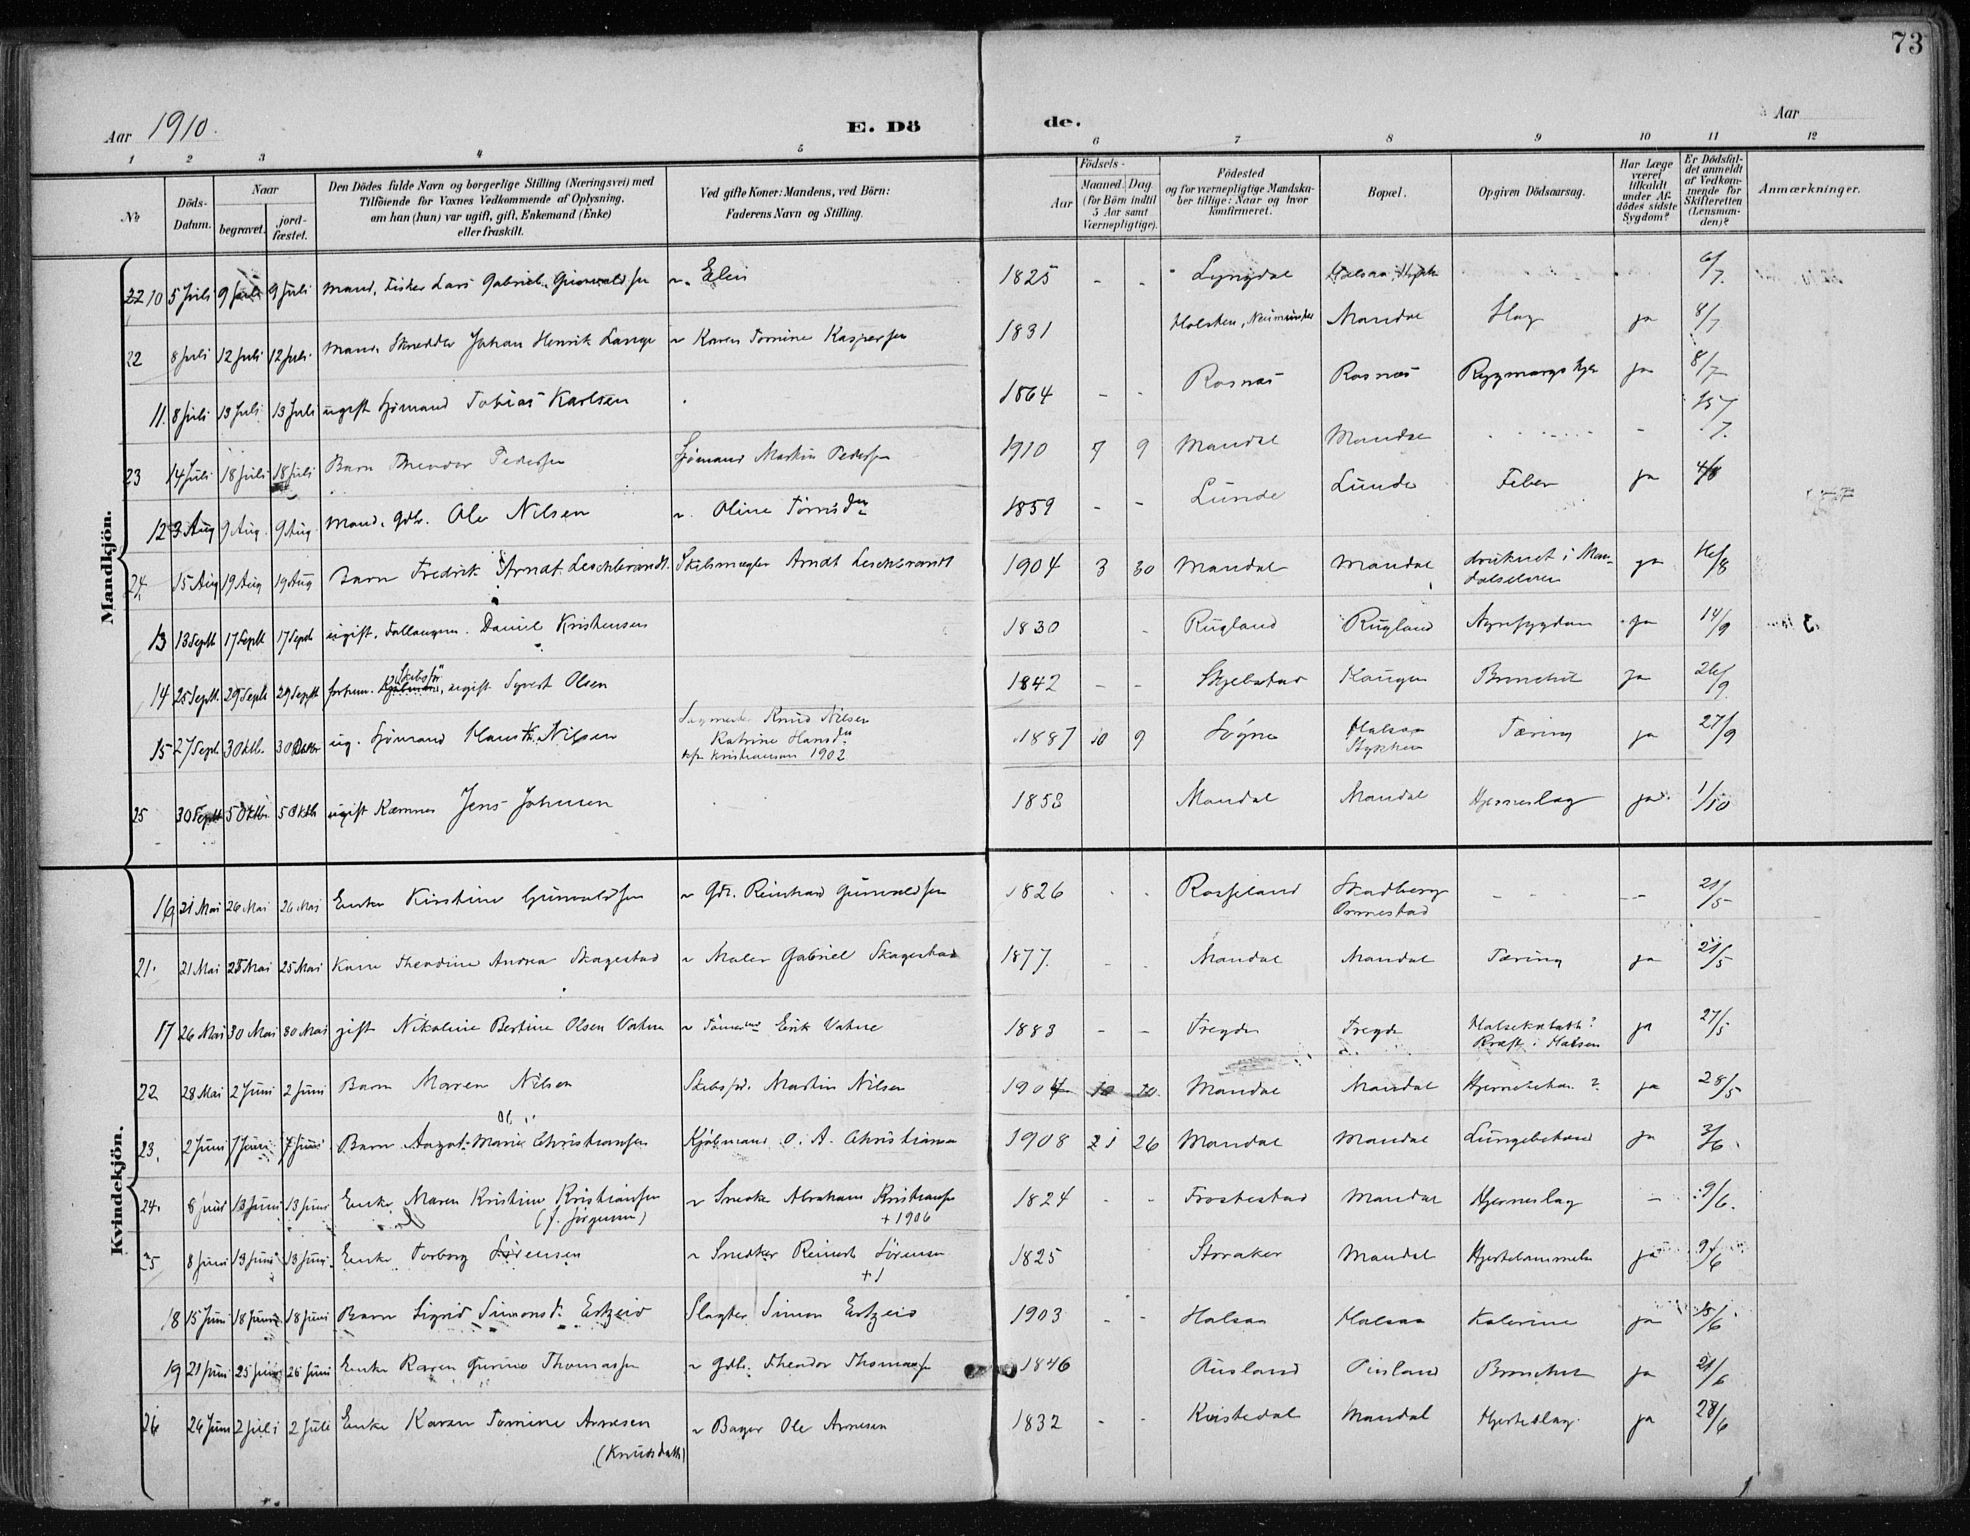 73
Aar 1910.
E. Dö
de.
Aar
1 2 3 4 5 6 7 8 9 10 11 12
No
Döds-
Datum.
Naar
begravet.
jord-
fæstet.
Den Dödes fulde Navn og borgerlige Stilling (Næringsvei) med
Tilföiende for Voxnes Vedkommende af Oplysning,
om han (hun) var ugift, gift, Enkemand (Enke)
eller fraskilt.
Ved gifte Koner: Mandens, ved Börn:
Faderens Navn og Stilling.
Födsels-
Aar
Maaned. Dag
(for Börn indtil
5 Aar samt
Værnepligtige).
Födested
og for værnepligtige Mandska-
ber tillige: Naar og hvor
konfirmeret.
Bopæl.
Opgiven Dödsaarsag.
Har Læge
været
tilkaldt
under Af-
dödes sidste
Sygdom?
Er Dödsfal-
det anmeldt
af Vedkom-
mende for
Skifteretten
(Lensman-
den)?
Anmærkninger.
Mandkjön.
10 5 Juli 9 Juli 9 Juli Mand, Fisker Lars Gabriel 1825 - - Lyngdal 6/7.
22 8 Juli 12 Juli 12 Juli Mand, Skredder Johan Henrik Lange ~ Karen Tomine Kaspersen 1831 Holsten, Mandal Slag ja 8/7
11. 8 Juli 13 Juli 13 Juli ugift Sjömand Tobias Karlsen 1864 - - Rosnæs Rosnæs ja 8/7
23 14 Juli 18 Juli 18 Juli Barn Theodor Pedersen Sjömand Martin Pedersen 1910 7 9 Mandal Mandal - 15/7.
12 3 Aug 9 Aug. 9 Aug Mand, Gdbr. Ole Nilsen ~ Oline 1859 - - Lunde Lunde Feber ja 4/8
24. 15 Aug 19 Aug 19 Aug Barn Fredrik Arndt Leschbrandt. Skibsmægler Arndt Leschbrandt 1904 3 30 Mandal Mandal druknet i Man-
dalselven ja 16/8
13 13 Septb 17 Septb 17 Septb ugift, Daniel Kristensen 1830 - Rugland Rugland Nyresygdom ja 14/9
14 25 Septb. 29 Septb 29 Septb forhen. Skibsför ugift Syvert Olsen 1842 - - Skjebstad Haugen Bronchit ja 26/9.
15 27 Septb 3 Oktb. 3 Oktbr ug. Sjömand Hans K. Nilsen Knud Nilsen
Katrine Hansdtr
Kristiansand 1902 1887 10 9 Søgne Halsaa
Stykken Tæring ja 27/9
25 30 Septb 5 Oktb. 5 Oktb ugift Kæmner Jens Johnsen 1858 Mandal Mandal Hjerneslag ja. 1/10
Kvindekjön.
16 21 Mai 26 Mai 26 Mai Enke Kirstine Gunvaldsen ~ Gdr. Reinhard Gunvaldsen 1826 - - Rosseland Skadberg
Ommestad - - -- 21/5
21. 21 Mai 25 Mai 25 Mai Kone Theodine Andrea Skagestad ~ Maler Gabriel Skagestad 1877. - - Mandal Mandal Tæring ja 21/5
17 26 Mai 30 Mai 30 Mai gift Nikoline Bertine Olsen Vatne ~ Tömmermd Erik Vatne 1883 - - Tregde Tregde
Kræft i Halsen ja 27/5
22 28 Mai 2 Juni 2 Juni Barn Maren Nilsen Skibsför. Martin Nilsen 1904 10 Mandal Mandal ja 28/5
23. 2 Juni 7 Juni 7 Juni Barn Aagot Marie Christiansen Kjöbmand O. A. Christiansen 1908 26 Mandal Mandal Lungebetænd ja 3/6.
24. 8 Juni 13 Juni 13 Juni Enke Maren Kristine Kristiansen
(f. Jörgensen) ~ Snedker Abraham Kristiansen
+ 1906 1824 - - Frostestad Mandal Hjerneslag - 9/6.
25 8 Juni 13 Juni 13 Juni. Enke Torborg Sörensen ~ Snedker Reinert Sörensen
+ 1825 Storaker Mandal Hjertelammelse ja 9/6
18 15 Juni 18 Juni 18 Juni Barn Sigrid Simonsd. Ertzeid Slagter Simon Ertzeid 1903 - - Halsaa Halsaa Kolerine ja 15/6
19 21 Juni 25 Juni 25 Juni Enke Karen Gurine Thomassen ~ Gdbr. Theodor Thomassen 1846 Ousland Ousland Bronchit ja 21/6
26 26 Juni 2 Juli 2 Juli Enke Karen Tomine Arnesen
(Knudsdatter) ~ Bager Ole Arnesen 1832 - - Kvistedal Mandal Hjerteslag. ja 28/6